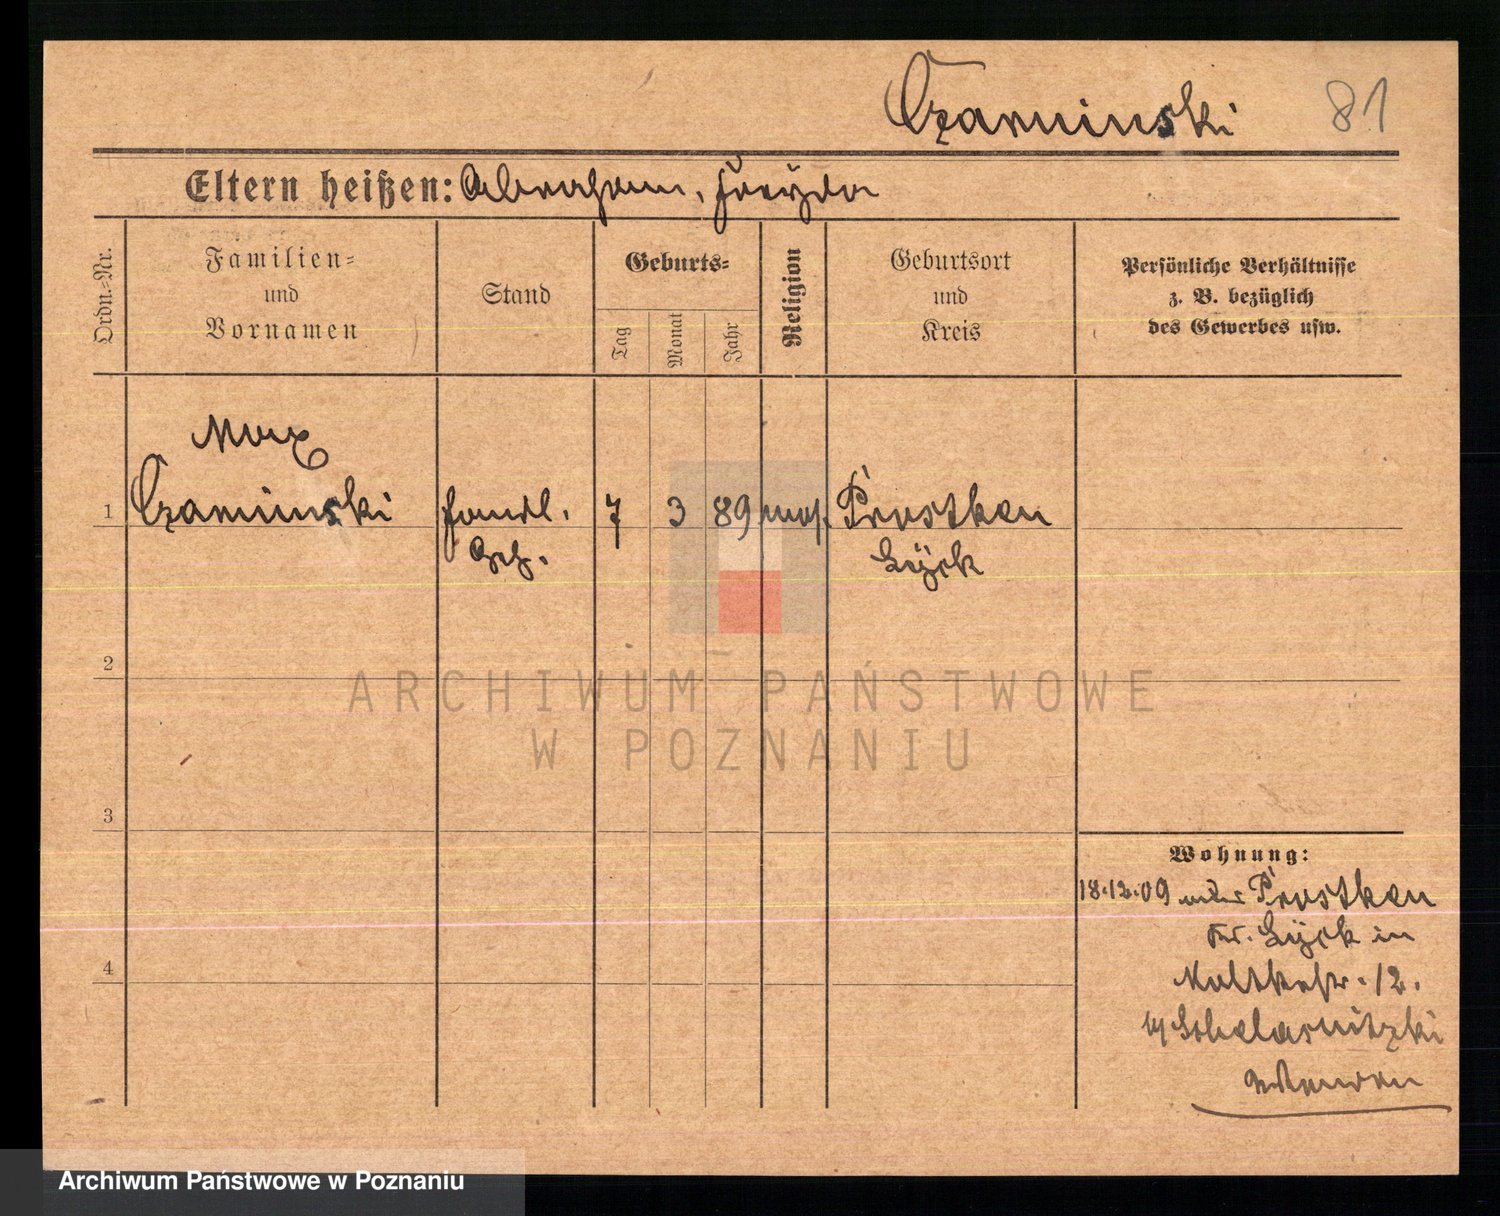 Czarninski 81
Eltern heißen: Abraham, Freyda
Ordn.-Nr.
Familien-
und
Vornamen
Stand
Geburts-
Tag
Monat
Jahr
Religion
Geburtsort
und
Kreis
Persönliche Verhältnisse
z. B. bezüglich
des Gewerbes usw.
Max
1 Czarninski Handl. 7 3 89 mos. Prostken
Geh. Lyck
2
3
4
Wohnung:
18.12.09 Prostken
Kr. Lyck in
Moltkestr. 12.
ARCHIWUM PAŃSTWOWE
W POZNANIU
Archiwum Państwowe w Poznaniu